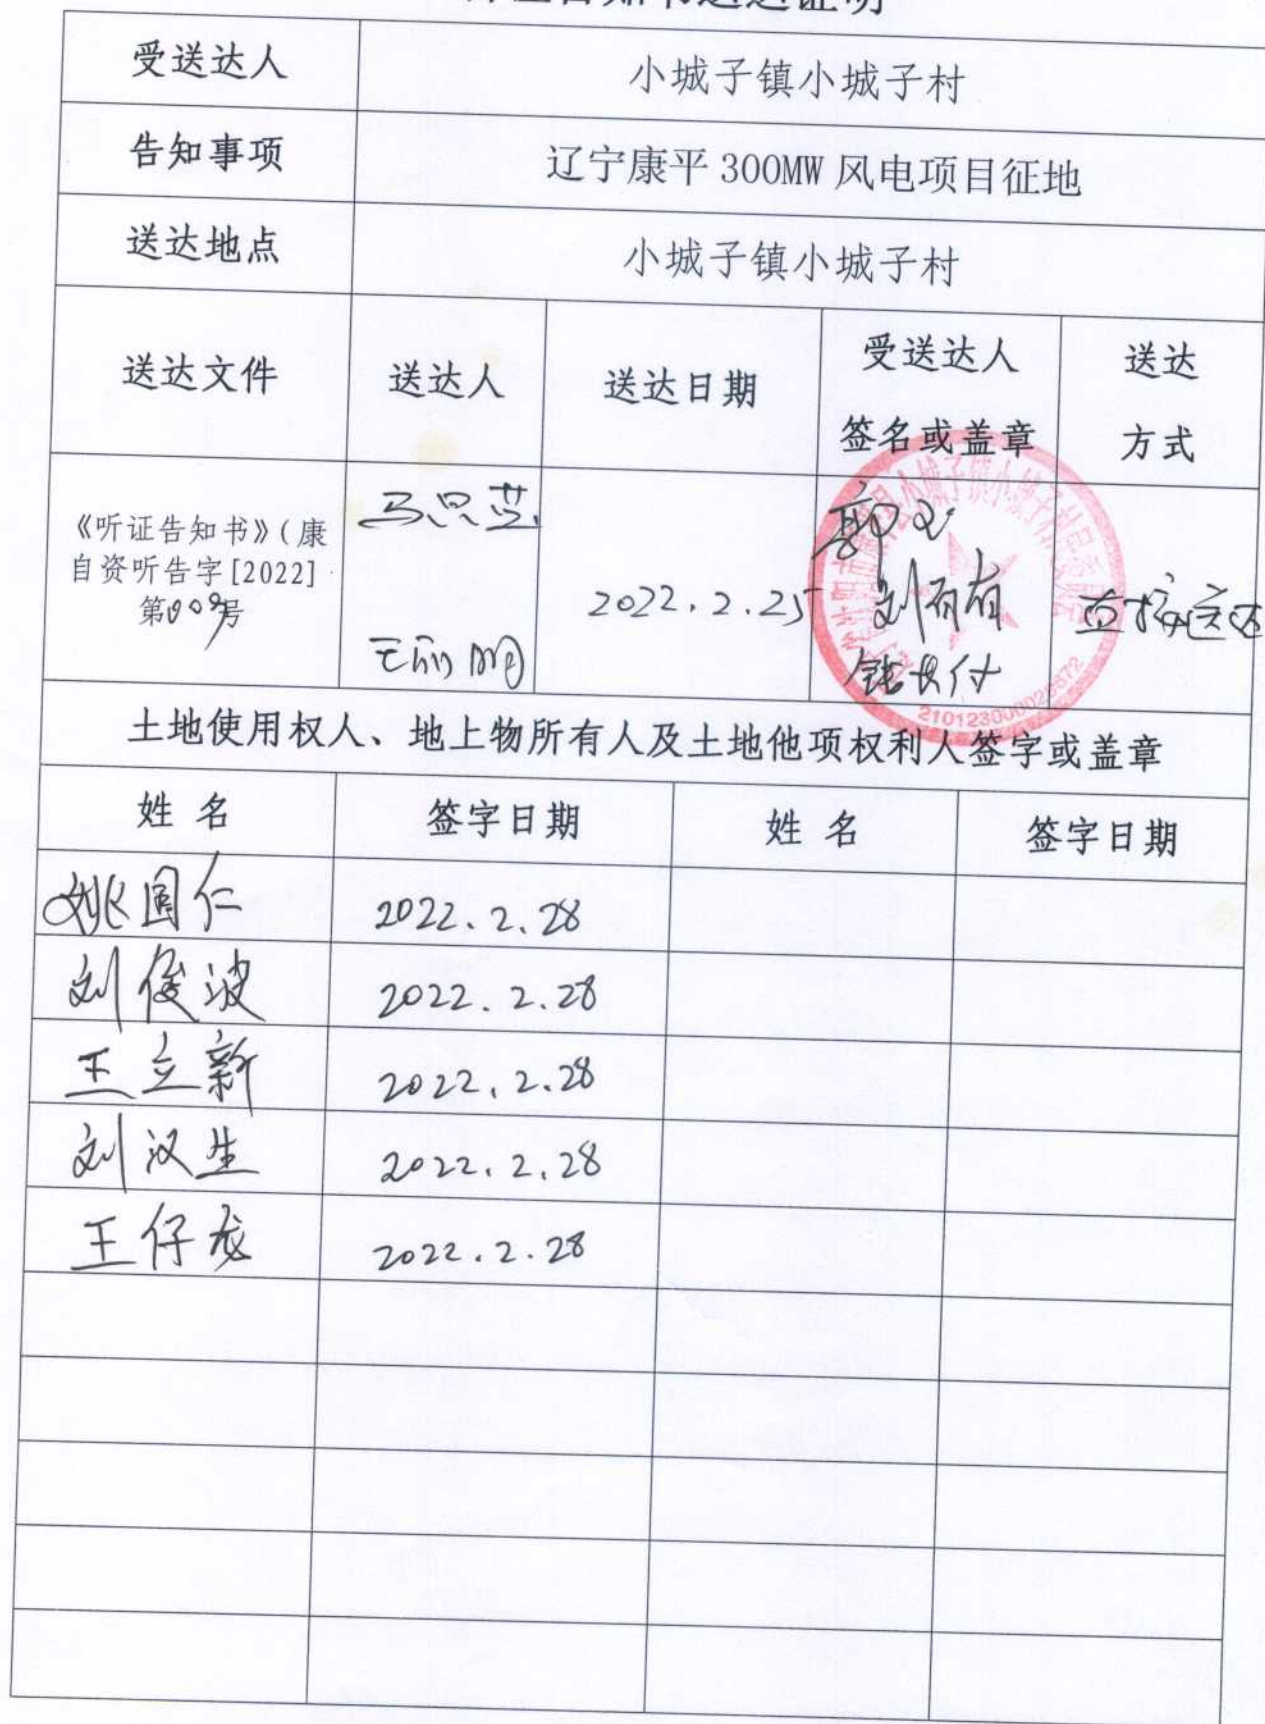 听证告知书送达证明
受送达人 小城子镇小城子村
告知事项 辽宁康平 300MW 风电项目征地
送达地点 小城子镇小城子村
送达文件 送达人 送达日期 受送达人 签名或盖章 送达 方式
《听证告知书》(康
自资听告字[2022]
第009号
2022.2.25
刘有有
直接送达
2101230000
土地使用权人、地上物所有人及土地他项权利人签字或盖章
姓 名 签字日期 姓 名 签字日期
姚国仁 2022.2.28
刘俊波 2022.2.28
王立新 2022.2.28
刘汉生 2022.2.28
王仔龙 2022.2.28